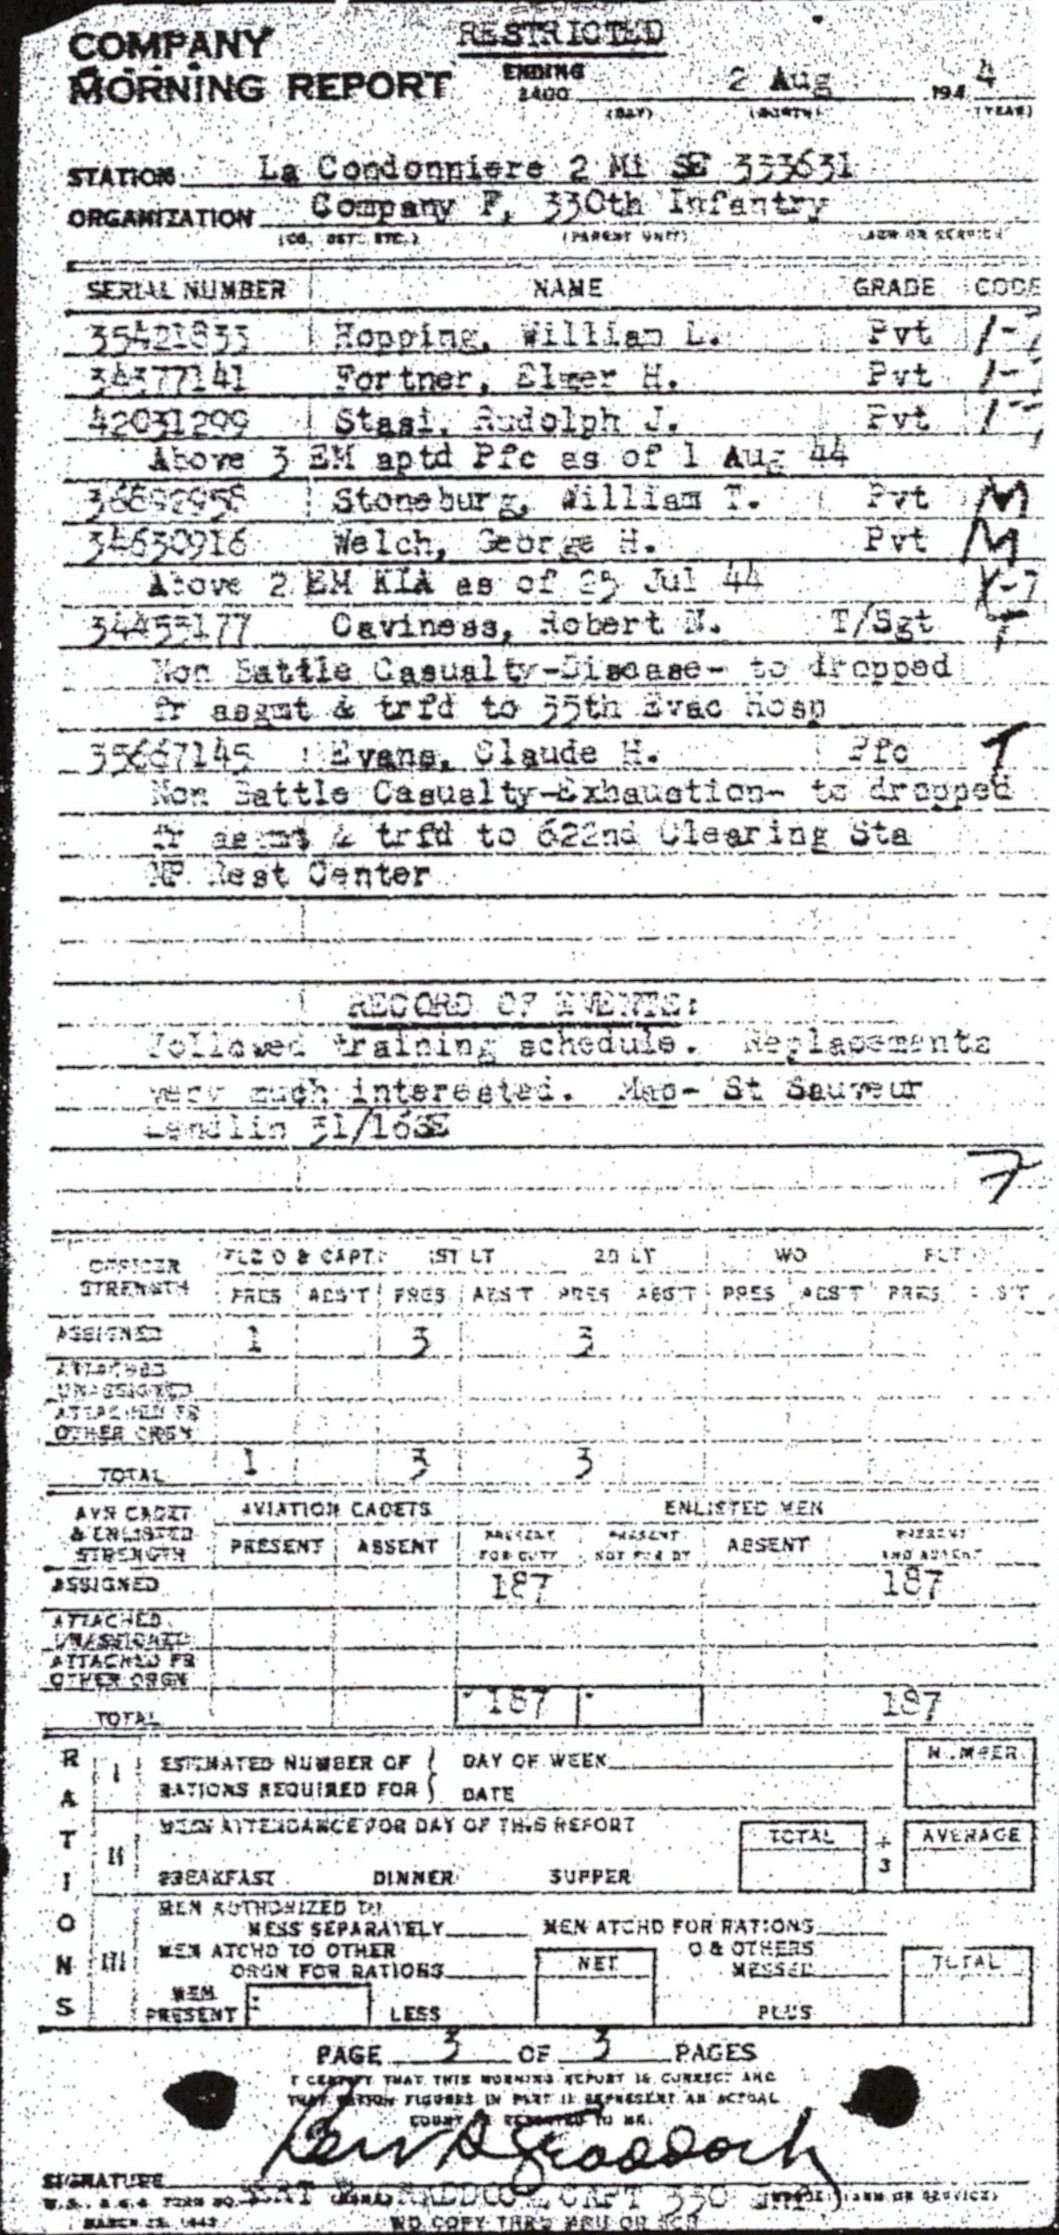 RESTRICTED
COMPANY
MORNING REPORT
ENDING
2400 2 Aug 1944
(DAY) (MONTH) (YEAR)
STATION La Condonniere 2 Mi SE 333631
ORGANIZATION Company F, 330th Infantry
(CO. DET. ETC.) (PARENT UNIT) (ARM OR SERVICE)
SERIAL NUMBER NAME GRADE CODE
35421833 Hopping, William L. Pvt
34377141 Fortner, Elmer H. Pvt
42031299 Stasi, Rudolph J. Pvt
Above 3 EM aptd Pfc as of 1 Aug 44
36892958 Stoneburg, William T. Pvt M
34630916 Welch, George H. Pvt M
Above 2 EM KIA as of 25 Jul 44
34455177 Caviness, Robert N. T/Sgt T
Non Battle Casualty-Disease- to dropped
fr asgmt & trfd to 35th Evac Hosp
35667145 Evans, Claude H. Pfc T
Non Battle Casualty-Exhaustion- to dropped
fr asgmt & trfd to 622nd Clearing Sta
NP Rest Center
RECORD OF EVENTS:
Followed training schedule. Replacements
very much interested. Map- St Sauveur
Lendlin 31/16SE
7
OFFICER STRENGTH FLD O & CAPT 1ST LT 2D LT WO FLT O
PRES ABS'T PRES ABS'T PRES ABS'T PRES ABS'T PRES ABS'T
ASSIGNED 1 3 3
ATTACHED
UNASSIGNED
ATTACHED FR
OTHER ORGN
TOTAL 1 3 3
AVN CADET & ENLISTED STRENGTH AVIATION CADETS ENLISTED MEN
PRESENT ABSENT PRESENT FOR DUTY PRESENT NOT FOR DY ABSENT PRESENT AND ABSENT
ASSIGNED 187 187
ATTACHED
UNASSIGNED
ATTACHED FR
OTHER ORGN
TOTAL 187 187
RATIONS
I ESTIMATED NUMBER OF DAY OF WEEK NUMBER
RATIONS REQUIRED FOR DATE
II MESS ATTENDANCE FOR DAY OF THIS REPORT TOTAL ÷ 3 AVERAGE
BREAKFAST DINNER SUPPER
III MEN AUTHORIZED TO
MESS SEPARATELY MEN ATCHD FOR RATIONS
MEN ATCHD TO OTHER
ORGN FOR RATIONS NET O & OTHERS MESSED TOTAL
MEN PRESENT LESS PLUS
PAGE 3 OF 3 PAGES
I CERTIFY THAT THIS MORNING REPORT IS CORRECT AND
THAT RATION FIGURES IN PART II REPRESENT AN ACTUAL
COUNT AS REPORTED TO ME.
SIGNATURE
CAPT 330
MARCH